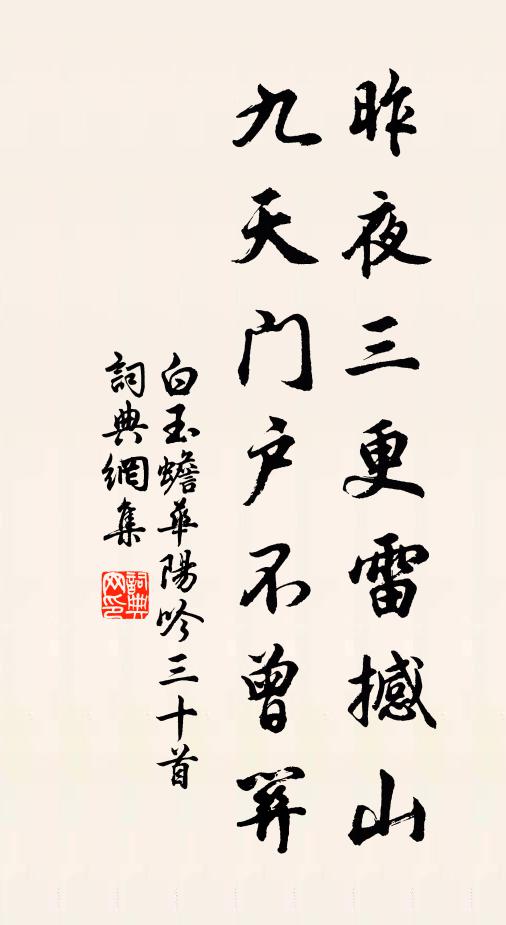 昨夜三更雷撼山
九天门户不曾關
白玉蟾華陽吟三十首
詞典網集
詞典
网印